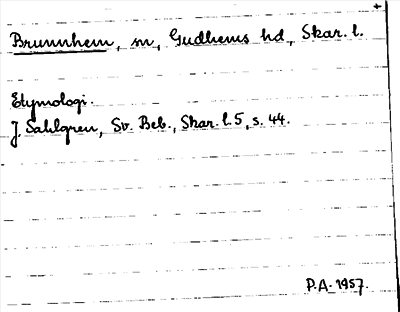 Brunnhem, sn, Gudhems hd, Skar. l.
Etymologi.
J. Sahlgren, Sv. Beb., Skar. l. 5, s. 44.
P.A. 1957.